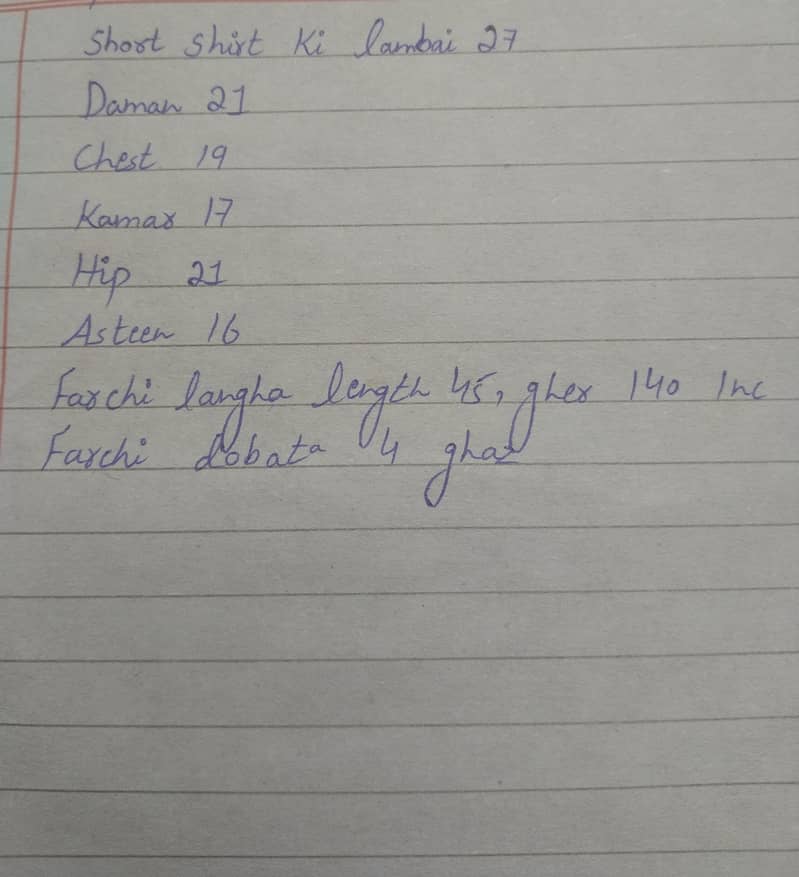 Short Shirt Ki lambai 27
Daman 21
Chest 19
Kamar 17
Hip 21
Asteen 16
Farchi langha length 45, gher 140 Inc
Farchi dobata 4 ghaz